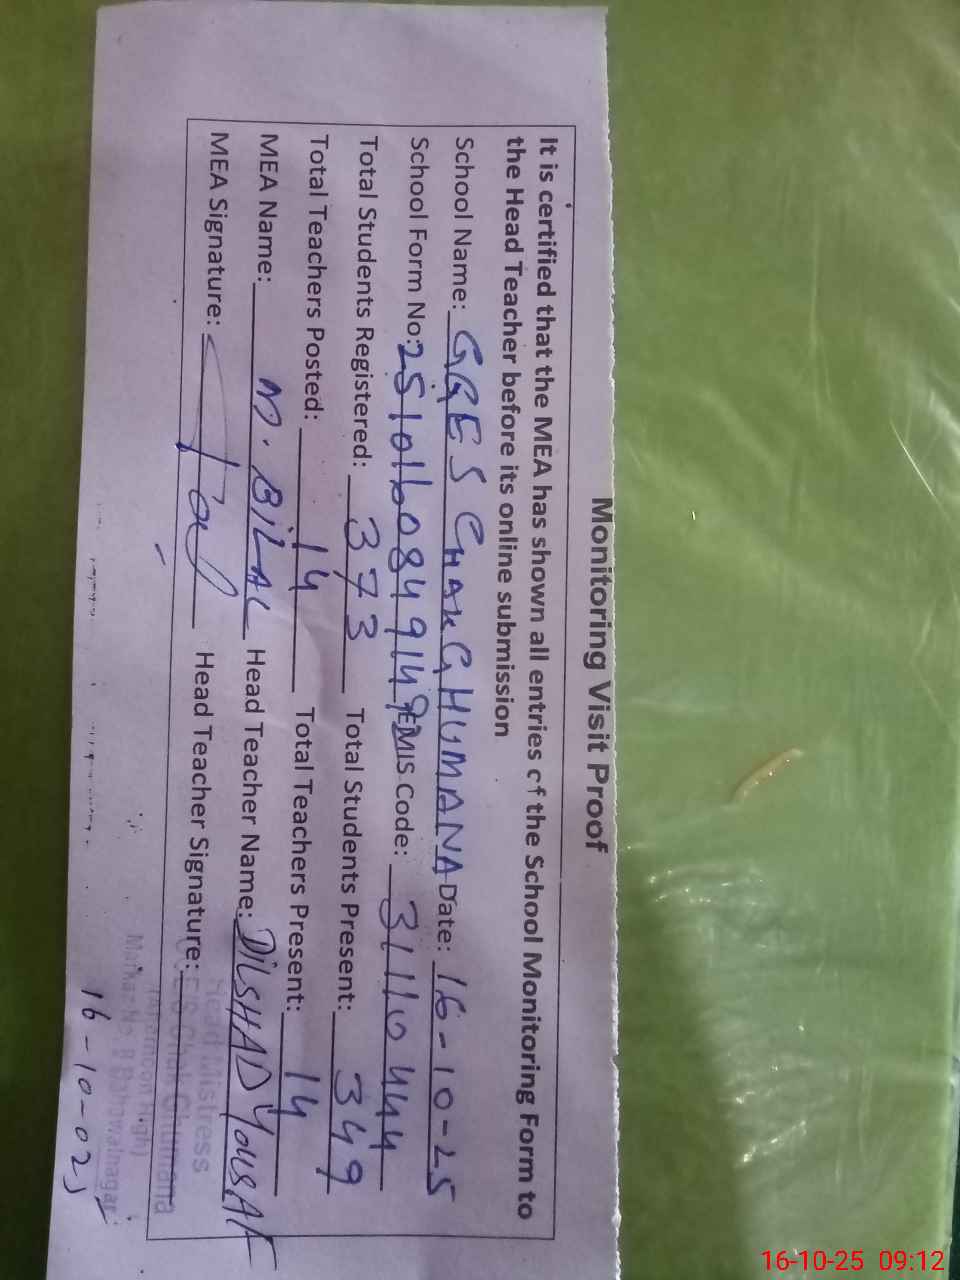 Monitoring Visit Proof
It is certified that the MEA has shown all entries of the School Monitoring Form to
the Head Teacher before its online submission
School Name: GGES CHAK GHUMANA Date: 16-10-25
School Form No: 25101160849149 EMIS Code: 31110444
Total Students Registered: 373 Total Students Present: 349
Total Teachers Posted: 14 Total Teachers Present: 14
MEA Name: M. BILAL Head Teacher Name: DILSHAD YOUSAF
MEA Signature: Head Teacher Signature:
Head Mistress
Chak Ghumana
(Afternoon High)
Markaz No. 8 Bahawalnagar
16-10-025
16-10-25 09:12